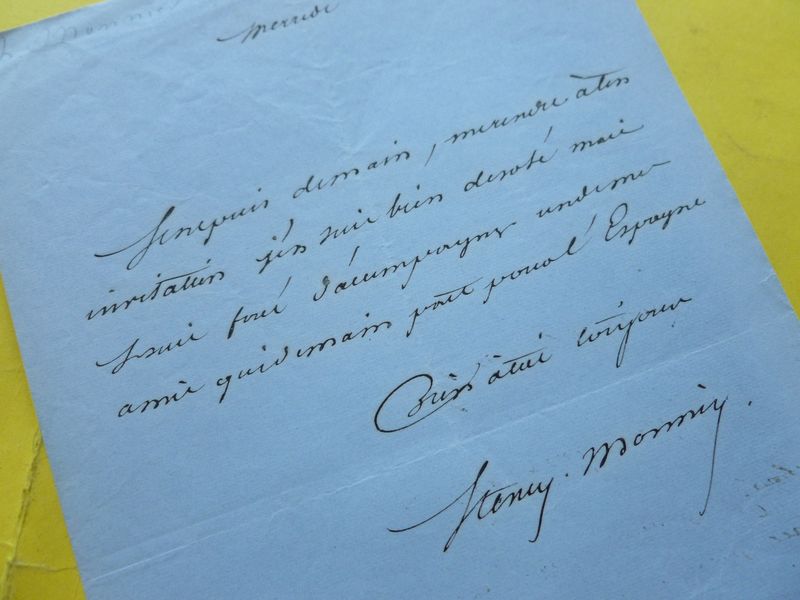 mercredi
Je ne puis demain, me rendre à ton
invitation j'en suis bien desolé mais
je suis forcé d'accompagner un de mes
amis qui demain part pour l'Espagne
Bien à toi toujours
Henry. Monnier.